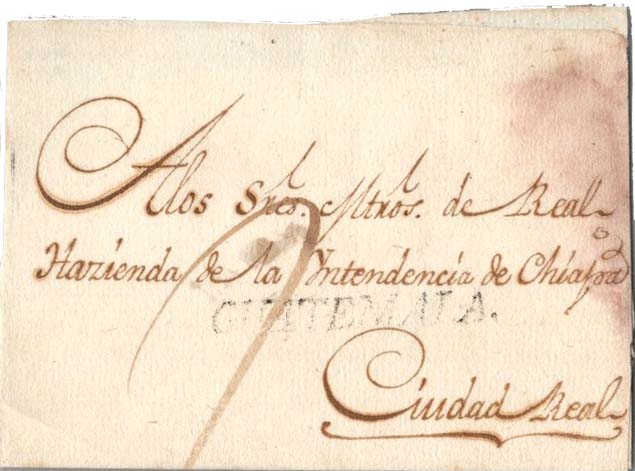 A los Sres. Mtros. de Real
Hazienda de la Yntendencia de Chiapa
GUATEMALA.
Ciudad Real